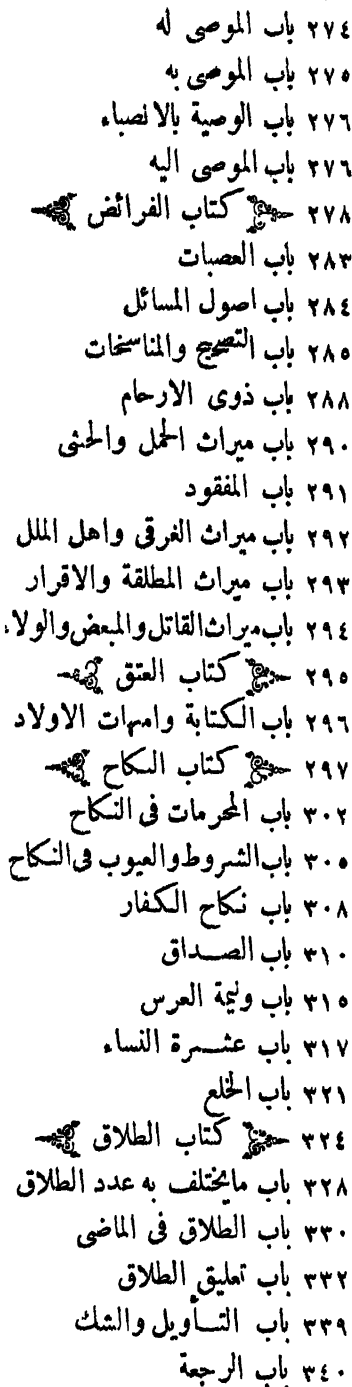 ٢٧٤ باب الموصى له
٢٧٥ باب الموصى به
٢٧٦ باب الوصية بالانصباء
٢٧٦ باب الموصى اليه
٢٧٨ كتاب الفرائض
٢٨٣ باب العصبات
٢٨٤ باب اصول المسائل
٢٨٥ باب التصحيح والمناسخات
٢٨٨ باب ذوى الارحام
٢٩٠ باب ميراث الحمل والخنثى
٢٩١ باب المفقود
٢٩٢ باب ميراث الغرقى واهل الملل
٢٩٣ باب ميراث المطلقة والاقرار
٢٩٤ باب ميراث القاتل والمبعض والولاء
٢٩٥ كتاب العتق
٢٩٦ باب الكتابة وامهات الاولاد
٢٩٧ كتاب النكاح
٣٠٢ باب المحرمات فى النكاح
٣٠٥ باب الشروط والعيوب فى النكاح
٣٠٨ باب نكاح الكفار
٣١٠ باب الصداق
٣١٥ باب وليمة العرس
٣١٧ باب عشرة النساء
٣٢١ باب الخلع
٣٢٤ كتاب الطلاق
٣٢٨ باب مايختلف به عدد الطلاق
٣٣٠ باب الطلاق فى الماضى
٣٣٢ باب تعليق الطلاق
٣٣٩ باب التأويل والشك
٣٤٠ باب الرجعة